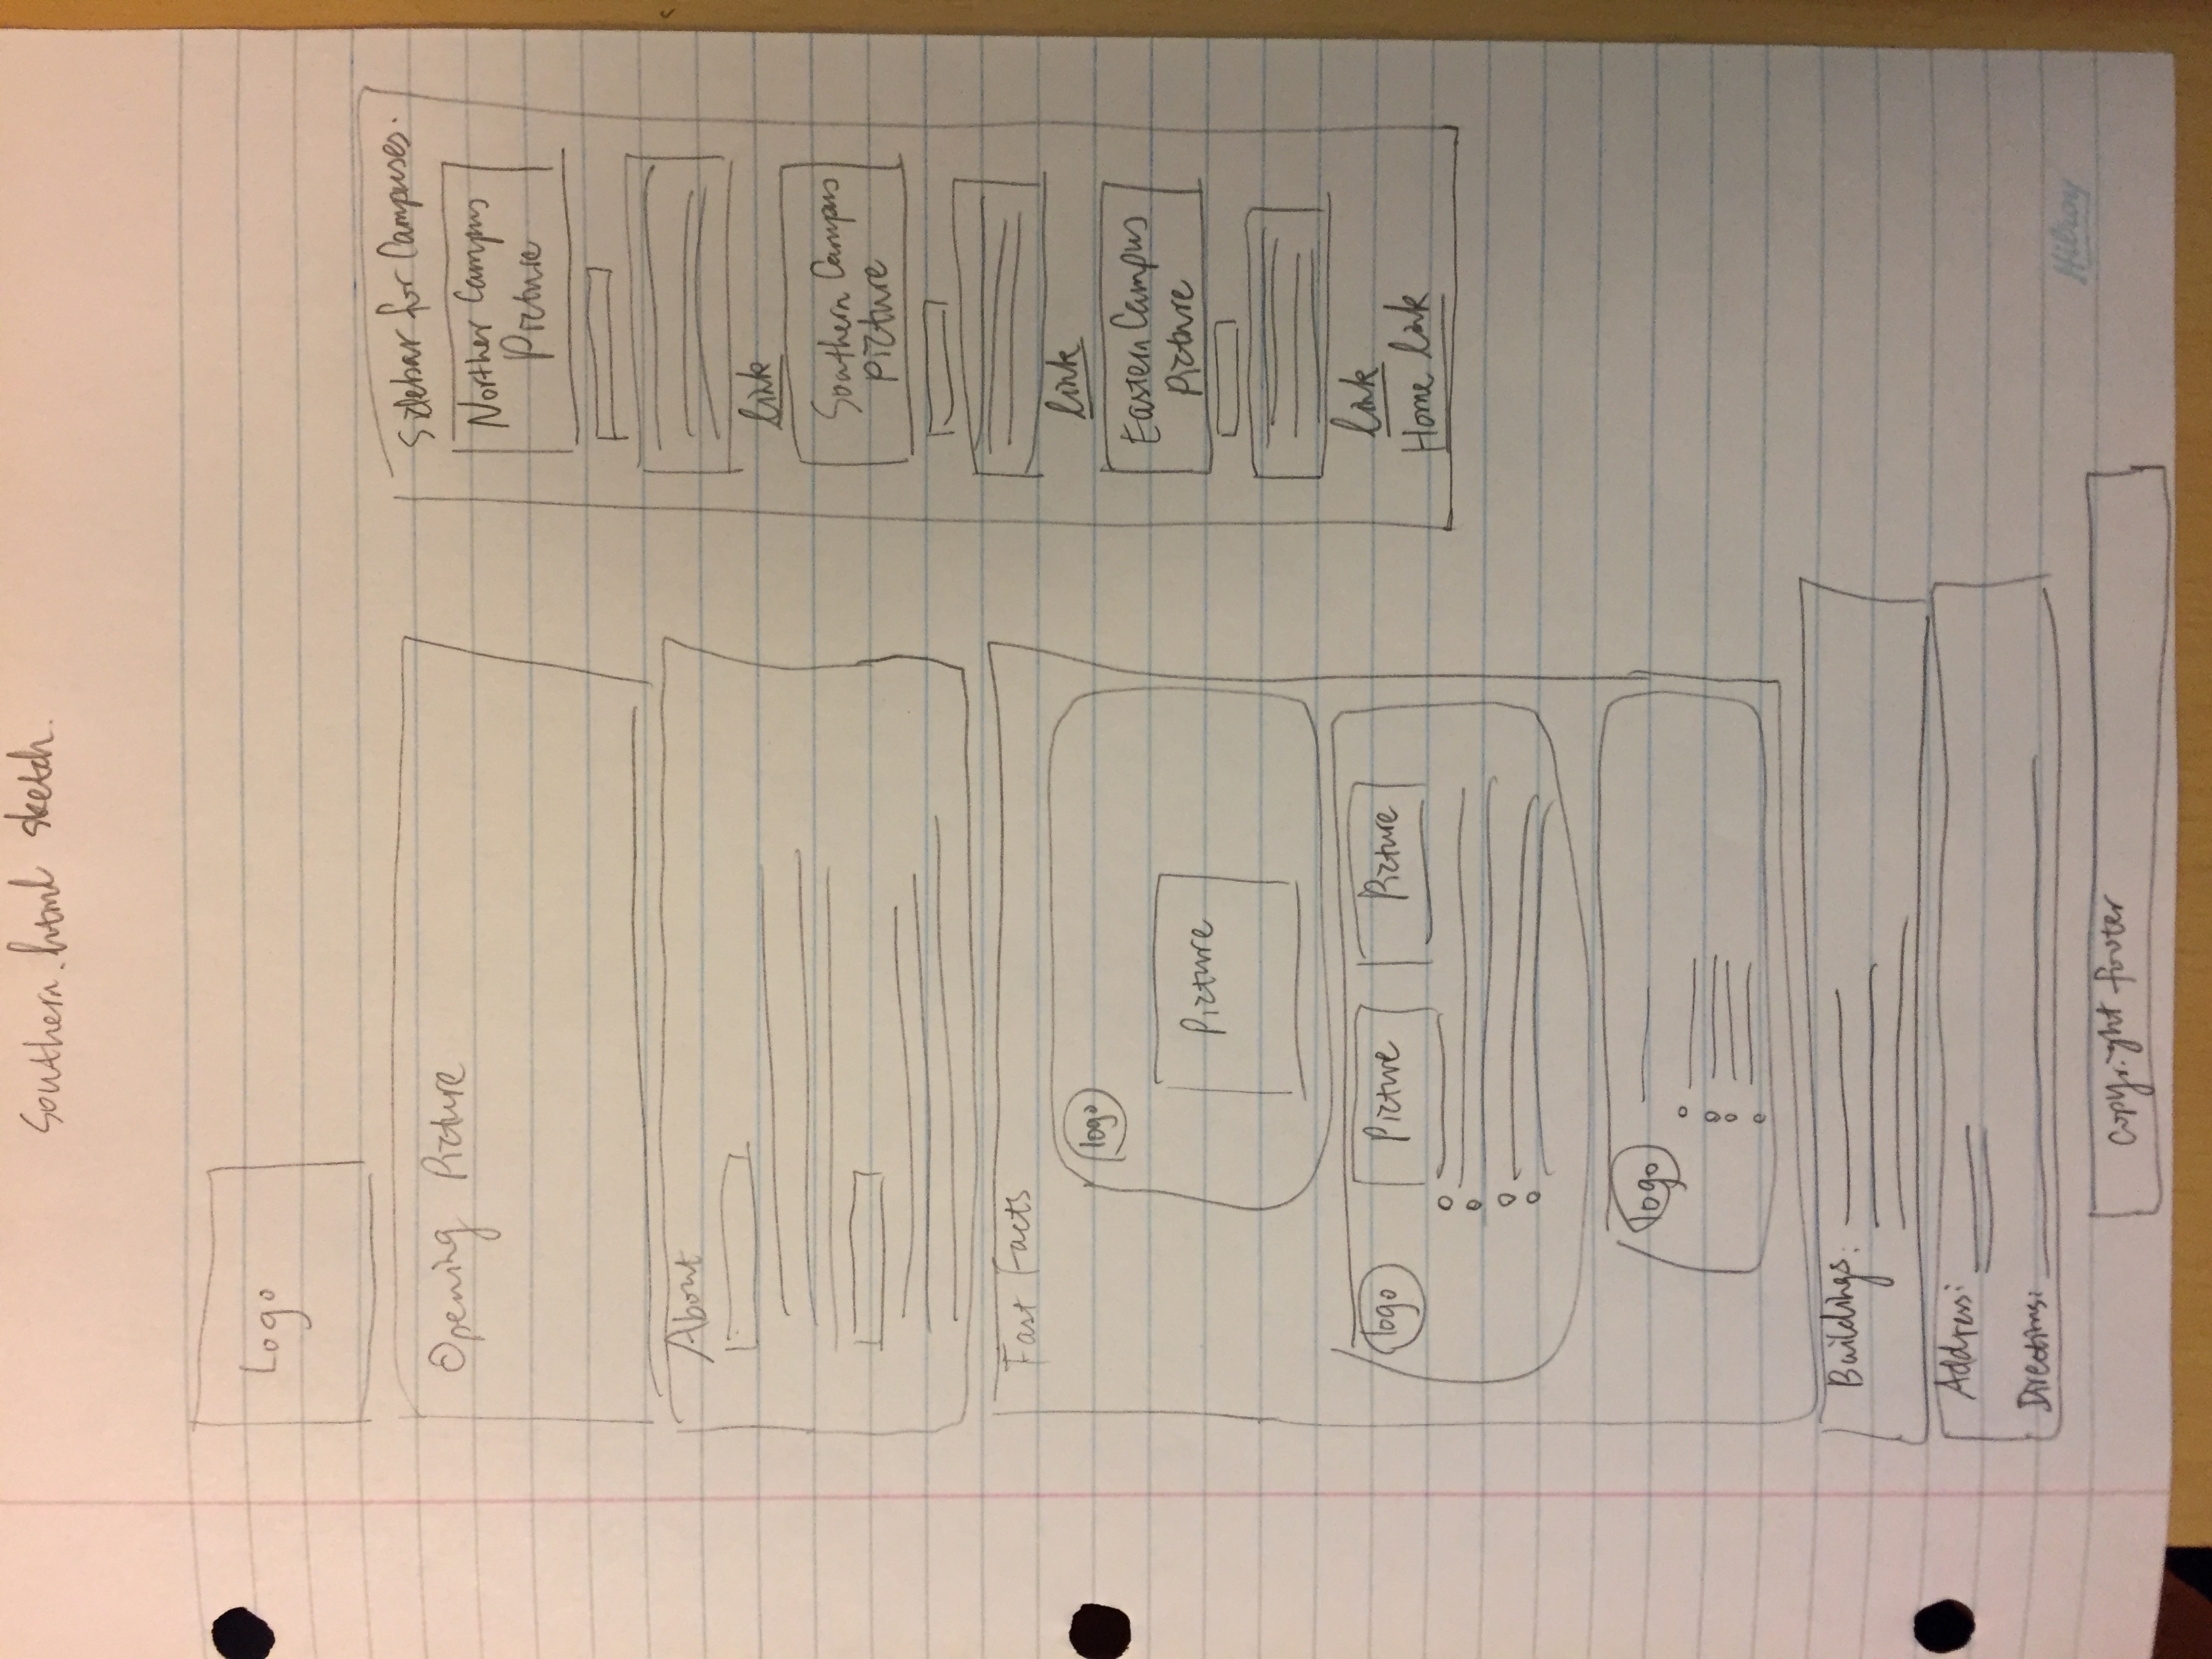 Southern.html sketch.
Logo
Opening Picture
About
Fast Facts
logo
Picture
logo
Picture
Picture
logo
Buildings:
Address:
Directions:
Copyright footer
Sidebar for Campuses.
Norther Campus
Picture
link
Southern Campus
Picture
link
Eastern Campus
Picture
link
Home link
Hilroy